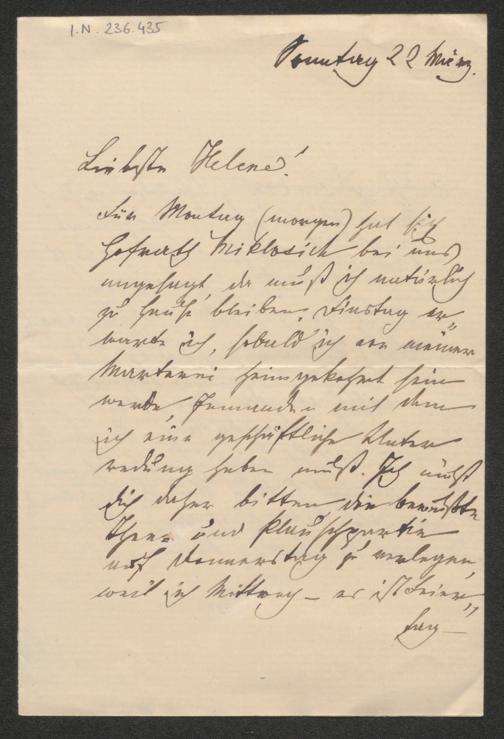 I.N. 236.435
Sonntag 22 März.
Liebste Helene!
Für Montag (morgen) hat sich
Hofrath Miklosich bei uns
angesagt, da muß ich natürlich
zu Hause bleiben. Dinstag er-
warte ich, sobald ich von meiner
Marterei heimgekehrt sein
werde, Jemanden mit dem
ich eine geschäftliche Unter
redung haben muß. Ich müßt
dich daher bitten, die bewußte
Thee- und Plauschpartie
auf Donnerstag zu verlegen,
weil ich Mittwoch – es ist Feier-
tag –